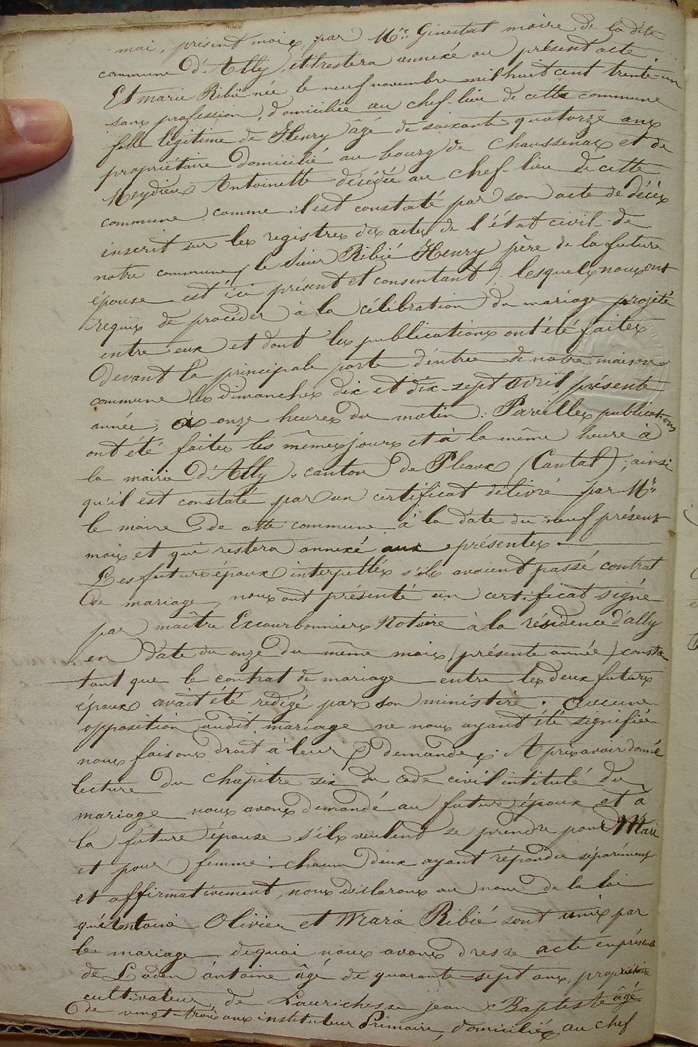 mai, présent mois, par Mr. Ginestat maire de la dite
commune d'Ally, et restera annexé au présent acte.
Et marie Ribié née le neuf novembre mil huit cent trente un
sans profession, domiciliée au chef lieu de cette commune
fille légitime de Henry âgé de soixante quatorze ans
propriétaire domicilié au bourg de Chaussenac et de
Meydieu Antoinette décédée au chef lieu de cette
commune, comme il est constaté par son acte de décès
inscrit sur les registres des actes de l'état civil de
notre commune, le sieur Ribié Henry père de la future
épouse est ici présent et consentant, lesquels nous ont
requis de procéder à la célébration du mariage projeté
entre eux et dont les publications ont été faites
Devant la principale porte d'entrée de notre maison
commune les dimanches dix et dix-sept avril présente
année, à onze heures du matin. Pareilles publications
ont été faites les mêmes jours et à la même heure à
la mairie d'Ally, canton de Pleaux (Cantal), ainsi
qu'il est constaté par un certificat délivré par Mr
le maire de cette commune à la date du neuf présent
mois et qui restera annexé aux présentes.
Les futurs époux interpellés s'ils avoient passé contrat
de mariage, nous ont présenté un certificat signé
par maître Escourbonnier Notaire à la résidence d'ally
en date du onze du même mois, présente année, consta
tant que le contrat de mariage entre les deux futurs
époux avait été redigé par son ministère. Aucune
opposition audit mariage ne nous ayant été signifiée
nous faisons droit à leur demande. Après avoir donné
lecture du chapitre six du code civil intitulé du
mariage nous avons demandé au futur époux et à
la future épouse s'ils veulent se prendre pour Mari
et pour femme, chacun deux ayant répondu séparément
et affirmativement, nous déclarons au nom de la loi
qu'Antoine Olivier et Marie Ribié sont unis par
le mariage, dequoi nous avons dressé acte en présence
de antoine âgé de quarante-sept ans, propriétaire
cultivateur, de Laurichesse jean Baptiste âgé
de vingt trois ans instituteur Primaire, domiciliés au chef